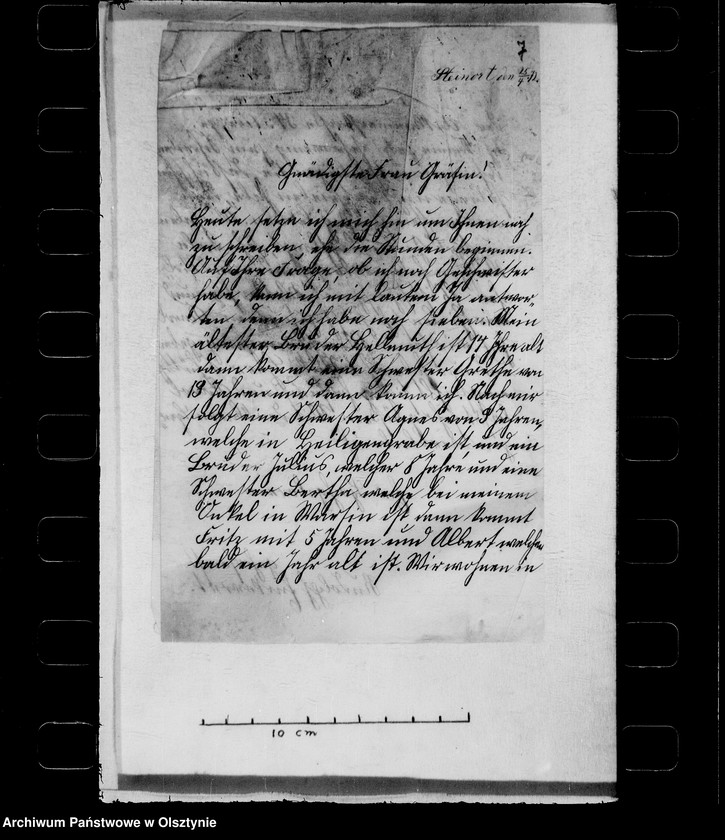 7
Steinort den
Gnädigste Frau Gräfin!
Heute setze ich mich hin um Ihnen noch
zu schreiben, ehe die Stunden beginnen.
Auf Ihre Frage, ob ich noch Geschwister
habe, kann ich mit lautem Ja antwor-
ten denn ich habe noch sieben. Mein
ältester Bruder Hellmuth ist 14 Jhre alt
dann kommt eine Schwester Grethe von
13 Jahren und dann komm ich. Nach mir
folgt eine Schwester Agnes von 9 Jahren,
welche in Heiligengrabe ist, und ein
Bruder Julius, welcher 8 Jahre, und eine
Schwester Bertha welche bei meinem
Onkel in Warsin ist dann kommt
Fritz mit 5 Jahren und Albert welcher
bald ein Jahr alt ist. Wir wohnen in
10 cm
Archiwum Państwowe w Olsztynie